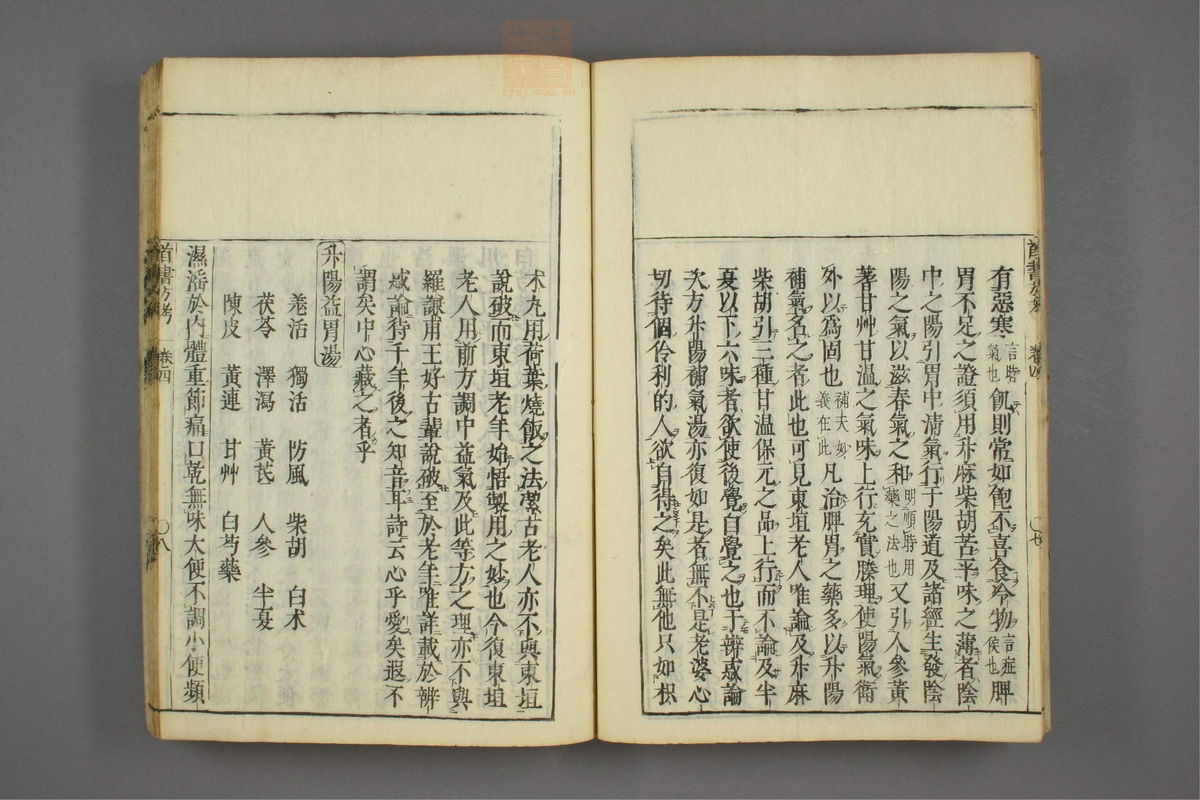 有惡寒言時氣也飢則常如飽不喜食冷物言症候也脾
胃不足之證須用升麻柴胡苦平味之薄者陰
中之陽引胃中清氣行于陽道及諸經生發陰
陽之氣以滋春氣之和明順時用藥之法也又引人參黃
茋甘艸甘溫之氣味上行充實腠理使陽氣衛
外以爲固也補天妙義在此凡治脾胃之藥多以升陽
補氣名之者此也可見東垣老人唯論及升麻
柴胡引三種甘温保元之品上行而不論及半
夏以下六味者欲使後覺自覺之也于辨惑論
次方升陽補氣湯亦復如是者無不是老婆心
切待個伶利的人欲自得之矣此無他只如枳
朮丸用荷葉燒飯之法潔古老人亦不與東垣
說破而東垣老年始悟製用之妙也今復東垣
老人用前方調中益氣及此等方之理亦不與
羅謙甫王好古輩說破至於老年唯詳載於辨
惑論待千年後之知音耳詩云心乎愛矣遐不
謂矣中心藏之者乎
升陽益胃湯
羗活 獨活 防風 柴胡 白朮
茯苓 澤瀉 黃茋 人參 半夏
陳皮 黃連 甘艸 白芍藥
濕淫於内體重節痛口乾無味大便不調小便頻
首書方考 卷四 〇八